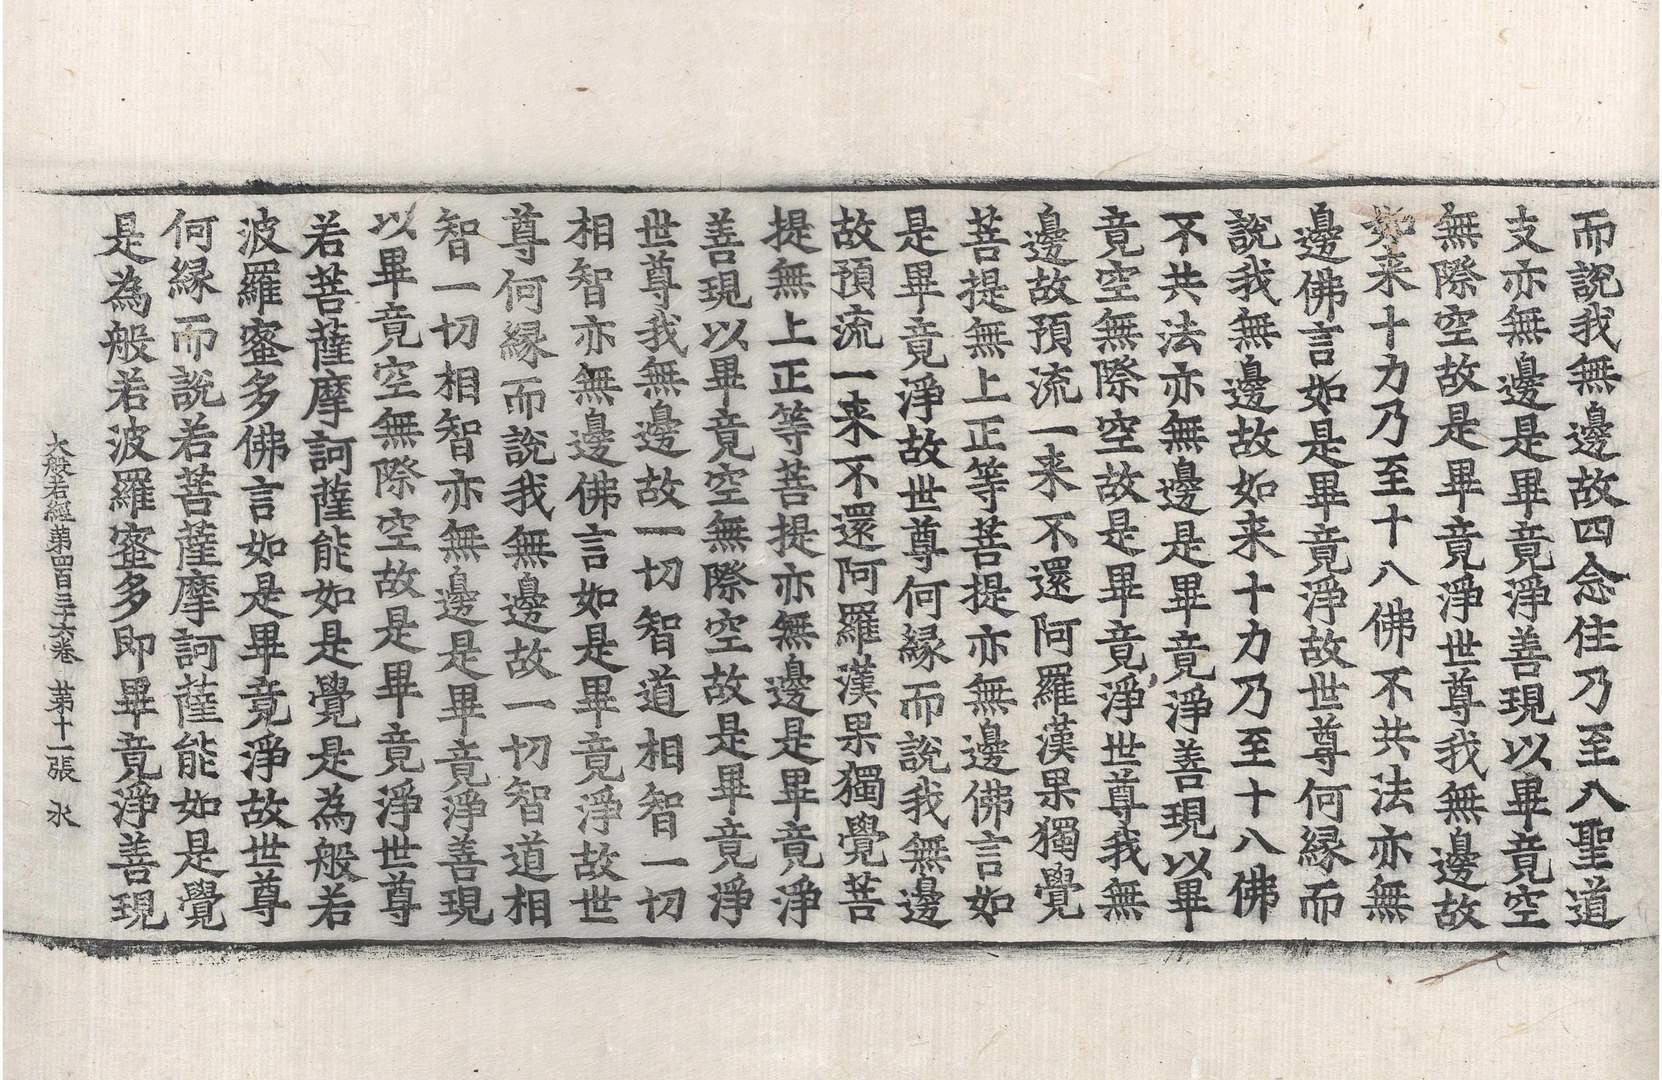 而說我無邊故四念住乃至八聖道
支亦無邊是畢竟淨善現以畢竟空
無際空故是畢竟淨世尊我無邊故
如来十力乃至十八佛不共法亦無
邊佛言如是畢竟淨故世尊何縁而
說我無邊故如来十力乃至十八佛
不共法亦無邊是畢竟淨善現以畢
竟空無際空故是畢竟淨世尊我無
邊故預流一来不還阿羅漢果獨覺
菩提無上正等菩提亦無邊佛言如
是畢竟淨故世尊何縁而說我無邊
故預流一来不還阿羅漢果獨覺菩
提無上正等菩提亦無邊是畢竟淨
善現以畢竟空無際空故是畢竟淨
世尊我無邊故一切智道相智一切
相智亦無邊佛言如是畢竟淨故世
尊何縁而說我無邊故一切智道相
智一切相智亦無邊是畢竟淨善現
以畢竟空無際空故是畢竟淨世尊
若菩薩摩訶薩能如是覺是為般若
波羅蜜多佛言如是畢竟淨故世尊
何縁而說若菩薩摩訶薩能如是覺
是為般若波羅蜜多即畢竟淨善現
大般若經第四百三十六卷 第十一張 氷